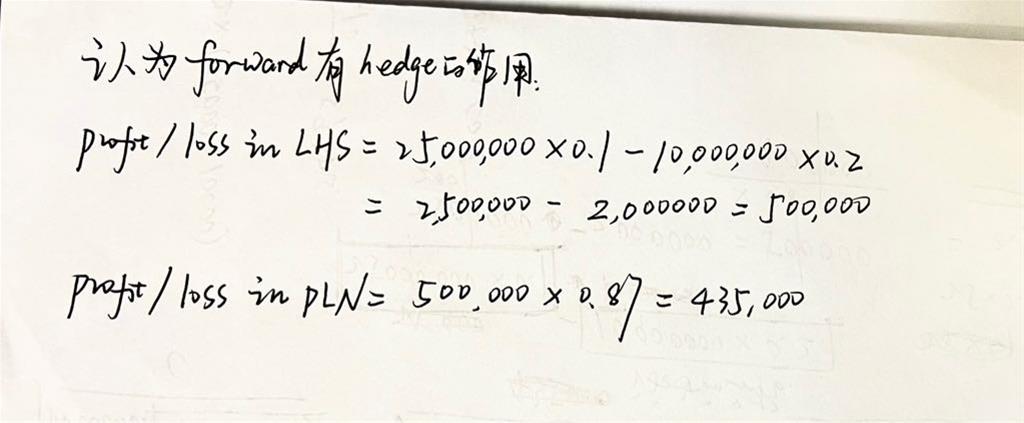 认为 forward 有 hedge 的作用.
profit / loss in LHS = 25,000,000 × 0.1 - 10,000,000 × 0.2
= 2,500,000 - 2,000000 = 500,000
profit / loss in PLN = 500,000 × 0.87 = 435,000